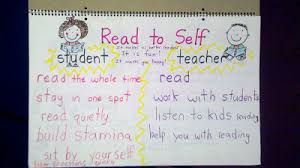 Read to Self
It makes us better readers!
It is fun!
It makes you happy!
student
teacher
read the whole time
stay in one spot
read quietly
build stamina
sit by yourself
read
work with students
listen to kids reading
help you with reading